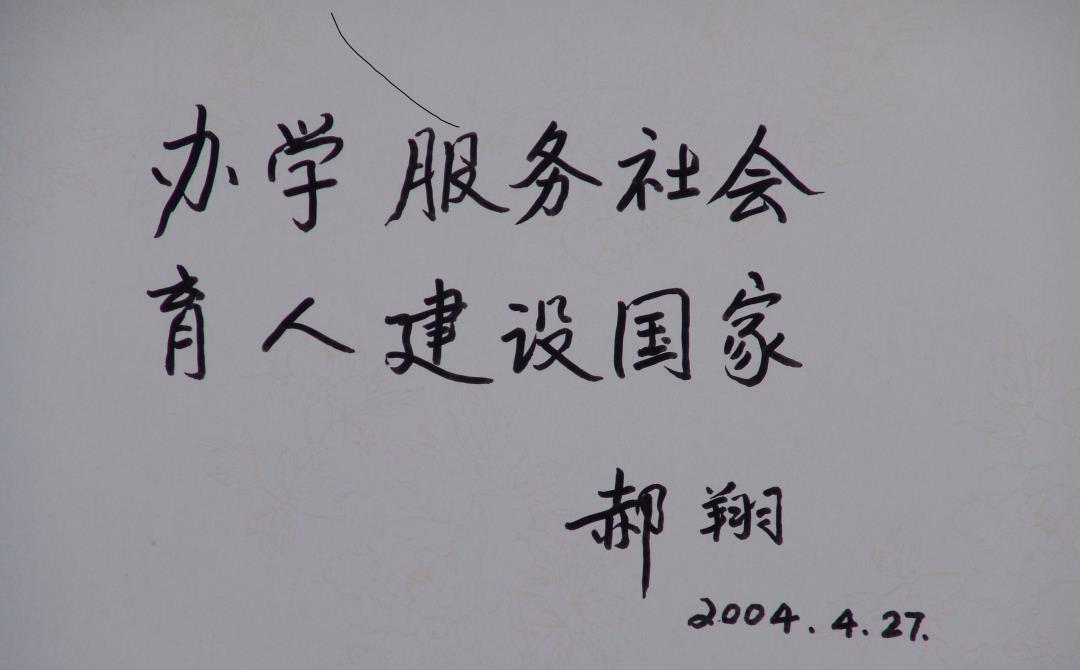 办学 服务社会
育人建设国家
郝翔
2004.4.27.